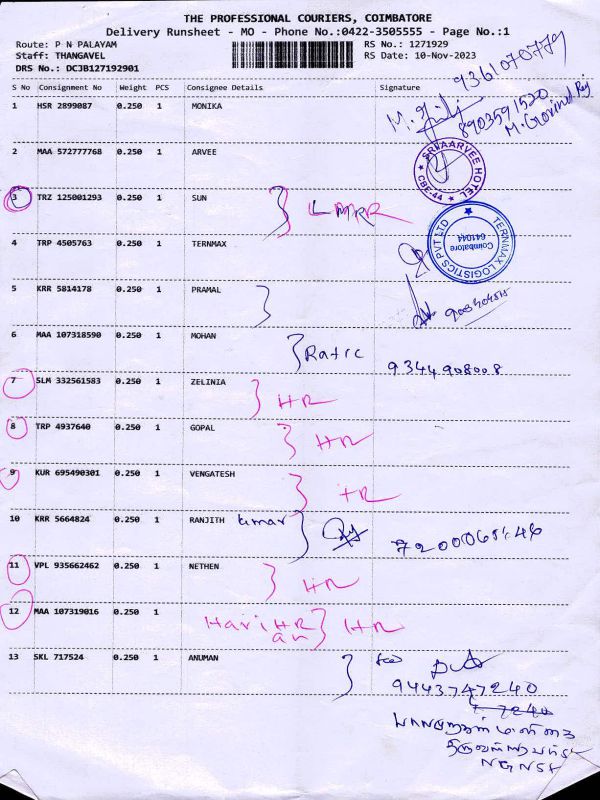 THE PROFESSIONAL COURIERS, COIMBATORE
Delivery Runsheet - MO - Phone No.:0422-3505555 - Page No.:1
Route: P N PALAYAM
Staff: THANGAVEL
DRS No.: DCJB127192901
RS No.: 1271929
RS Date: 10-Nov-2023
S No Consignment No Weight PCS Consignee Details Signature
9361070779
1 HSR 2899087 0.250 1 MONIKA
8903591520
M. Govind Raj
2 MAA 572777768 0.250 1 ARVEE
SRI AARVEE HOTEL
CBE-44
3 TRZ 125001293 0.250 1 SUN
TERNMAX LOGISTICS PVT LTD
Coimbatore
641044
4 TRP 4505763 0.250 1 TERNMAX
5 KRR 5814178 0.250 1 PRAMAL
6 MAA 107318590 0.250 1 MOHAN
9344908008
7 SLM 332561583 0.250 1 ZELINIA HR
8 TRP 4937640 0.250 1 GOPAL HR
9 KUR 695490301 0.250 1 VENGATESH HR
10 KRR 5664824 0.250 1 RANJITH kumar
11 VPL 935662462 0.250 1 NETHEN HR
12 MAA 107319016 0.250 1 HR
13 SKL 717524 0.250 1 ANUMAN
9443747240
7240